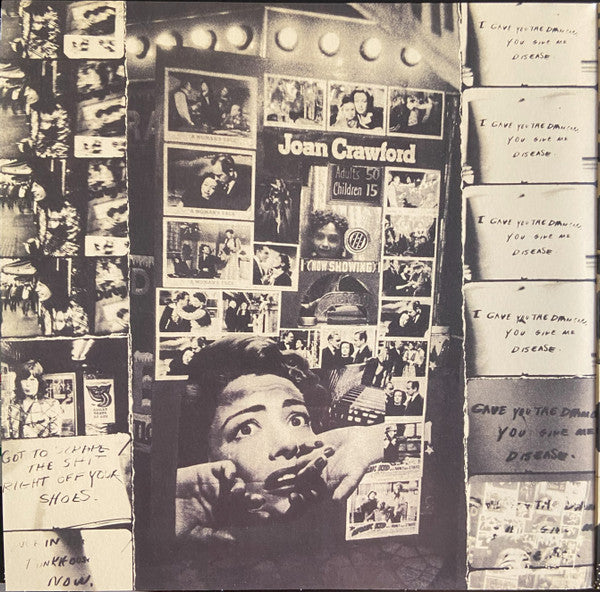 Joan Crawford
Adults 50
Children 15
NOW SHOWING
A WOMAN'S FACE
A WOMAN'S FACE
A WOMAN'S FACE
GOT TO SCRAPE
THE SHIT
RIGHT OFF YOUR
SHOES.
IN
NOW.
I GAVE YOU THE DIAMONDS
YOU GIVE ME
DISEASE.
I GAVE YOU THE DIAMONDS
YOU GIVE ME
DISEASE.
I GAVE YOU THE DIAMONDS
YOU GIVE ME
DISEASE
I GAVE YOU THE DIAMONDS
YOU GIVE ME
DISEASE
GAVE YOU THE DIAMONDS
YOU GIVE ME
DISEASE.
YOU THE